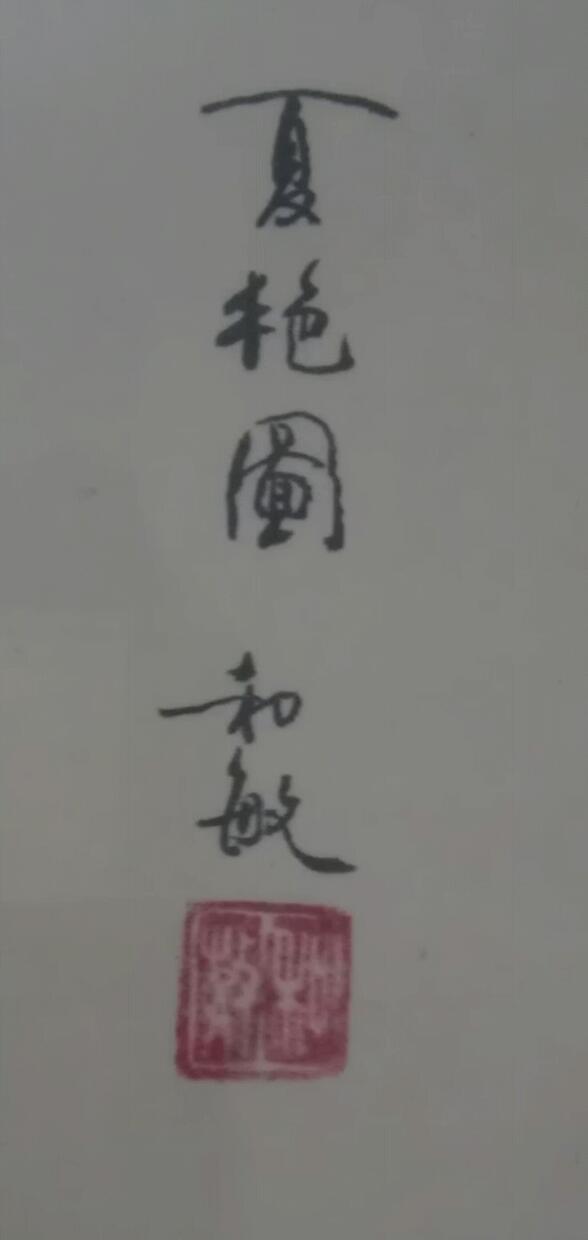 夏艳圖
和敏